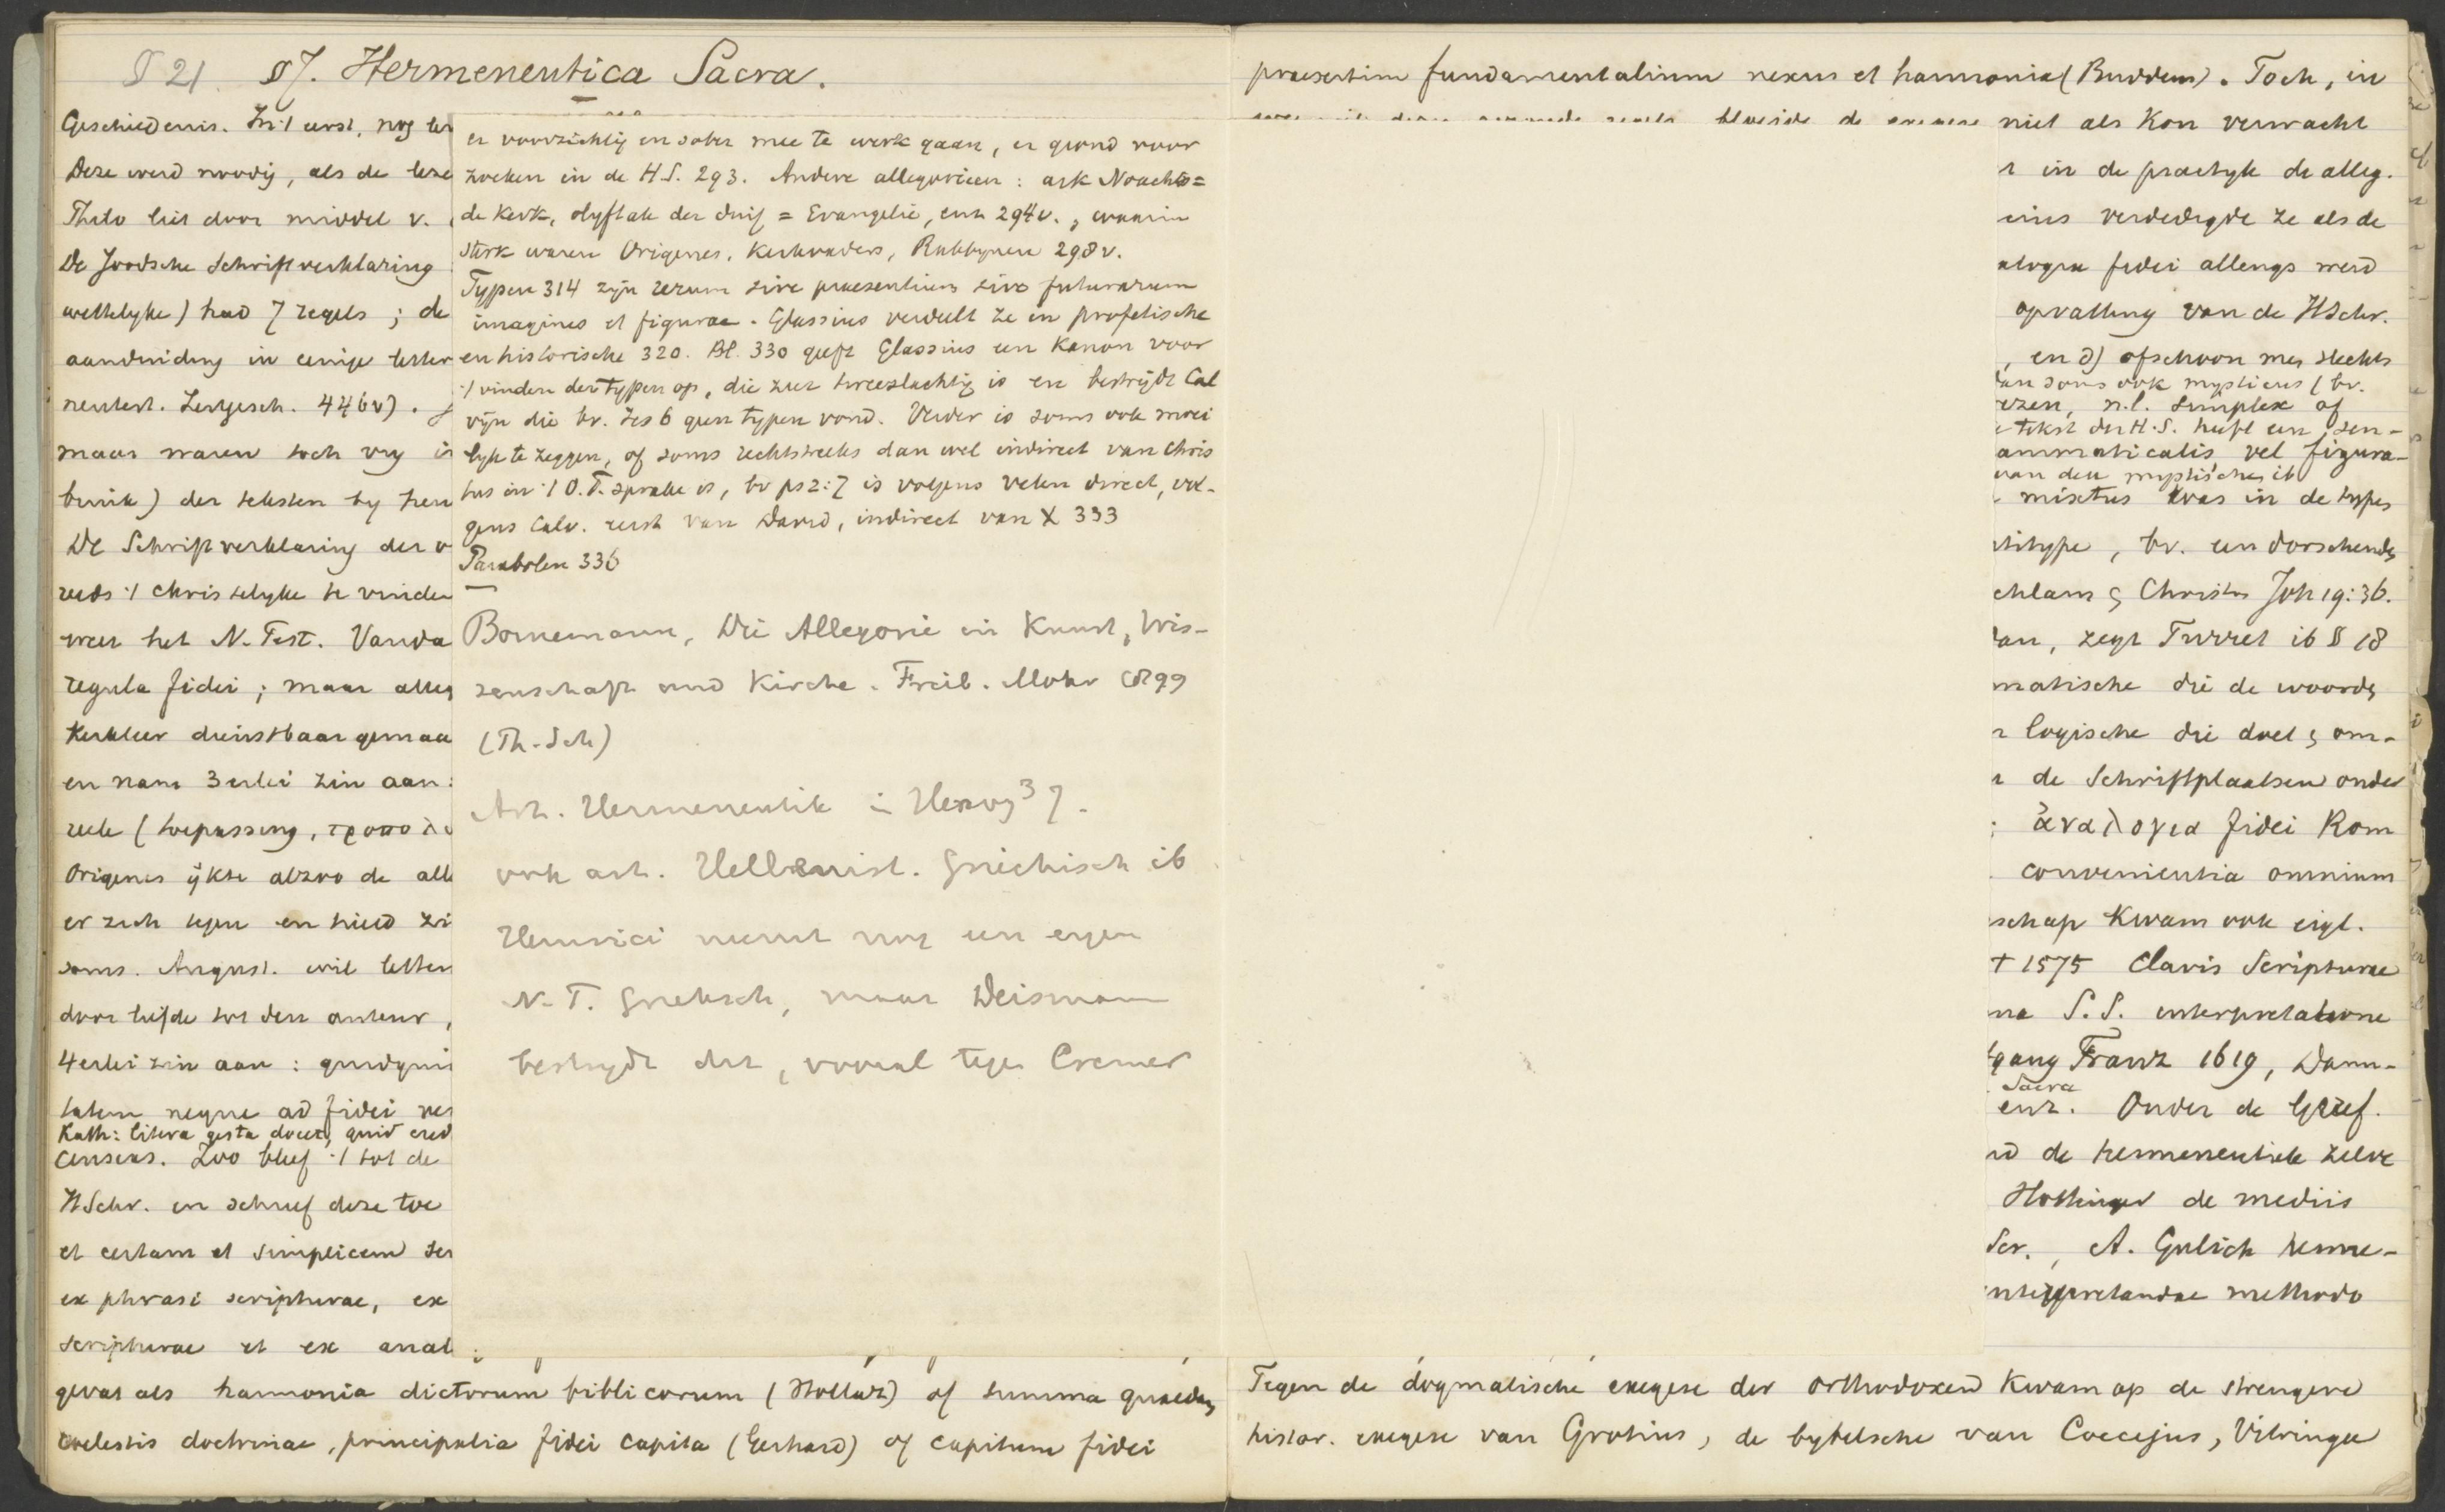 § 21 §7. Hermeneutica Sacra.
Geschiedenis. In 't eerst, nog
Deze werd noodig, als de
Philo liet door middel v.
De Joodsche Schriftverklaring
wettelyke) had 7 regels ; de
aanduiding in eenige letter
neutest. Zeitgesch. 446v).
maar waren toch vry in
bruik) der teksten by hen
De Schriftverklaring der v
reeds 't Christelyke te vinden
weer het N. Test. Vanda
regula fidei ; maar alleg
Kerkleer dienstbaar gemaa
en nam 3erlei zin aan :
reele (toepassing,
Origenes ijkte alzoo de alle
er zich tegen en hield zi
soms. August. wil letter
door liefde tot den auteur,
4erlei zin aan : quidqui
tatem neque ad fidei ver
Kath: litera gesta docet, quid cred
censeas. Zoo bleef 't tot de
HSchr. en schreef deze toe
et certam et simplicem sen
ex phrasi scripturae, ex
scripturae et ex anal
gevat als harmonia dictorum biblicorum (Hollaz) of summa quaedam
coelestis doctrinae, principalia fidei capita (Gerhard) of capitum fidei
er voorzichtig en sober mee te werk gaan, er grond voor
zoeken in de H.S. 293. Andere allegorieen : ark Noachs =
de Kerk, olyftak der duif = Evangelie, enz 294v., waarin
sterk waren Origenes, Kerkvaders, Rabbynen 298v.
Typen 314 zijn rerum sive praesentium sive futurarum
imagines et figurae. Glassius verdeelt ze in profetische
en historische 320. Bl. 330 geeft Glassius een Kanon voor
't vinden der typen op, die zeer tweeslachtig is en bestrijdt Cal
vijn die bv. Jes 6 geen typen vond. Verder is soms ook moei
lyk te zeggen, of soms rechtstreeks dan wel indirect van Chris
tus in 't O.T. sprake is, bv ps 2:7 is volgens velen direct, vol-
gens Calv. eerst van David, indirect van X 333
Parabolen 336
Bornemann, Die Allegorie in Kunst, Wis-
senschaft und Kirche. Freib. Mohr 1899
(Th. Sch)
Art. Hermeneutik in Herzog³ 7.
ook art. Hellenist. Griechisch ib
Heinrici neemt nog een eigen
N. T. Grieksch, maar Deismann
bestrydt dit, vooral tegen Cremer
praesertim fundamentalium nexus et harmonia (Buddeus). Toch, in
bloeide de exegese niet als Kon verwacht
in de practyk de alleg.
verdedigde ze als de
alogia fidei allengs werd
opvatting van de HSchr.
, en d) ofschoon men slechts
an soms ook mysticus (bv.
ezen, n.l. simplex of
e tekst der H.S. heeft een sen-
ammaticalis vel figura-
van den mystischen ib
mixtus was in de types
titype, bv. een dorschende
chlam & Christus Joh 19:36.
an, zegt Turret ib § 18
matische die de woorden
logische die doel & om-
de Schriftplaatsen onder
ἀναλογια fidei Rom
convenientia omnium
schap Kwam ook eigl.
† 1575 Clavis Scripturae
na S.S. interpretatione
gang Franz 1619, Dann-
Sacra
enz. Onder de Geref.
d de hermeneutiek zelve
Hottinger de mediis
Scr., A. Gulich herme-
nterpretandae methodo
Tegen de dogmatische exegese der orthodoxen Kwam op de strengere
histor. exegese van Grotius, de bybelsche van Coccejus, Vitringa